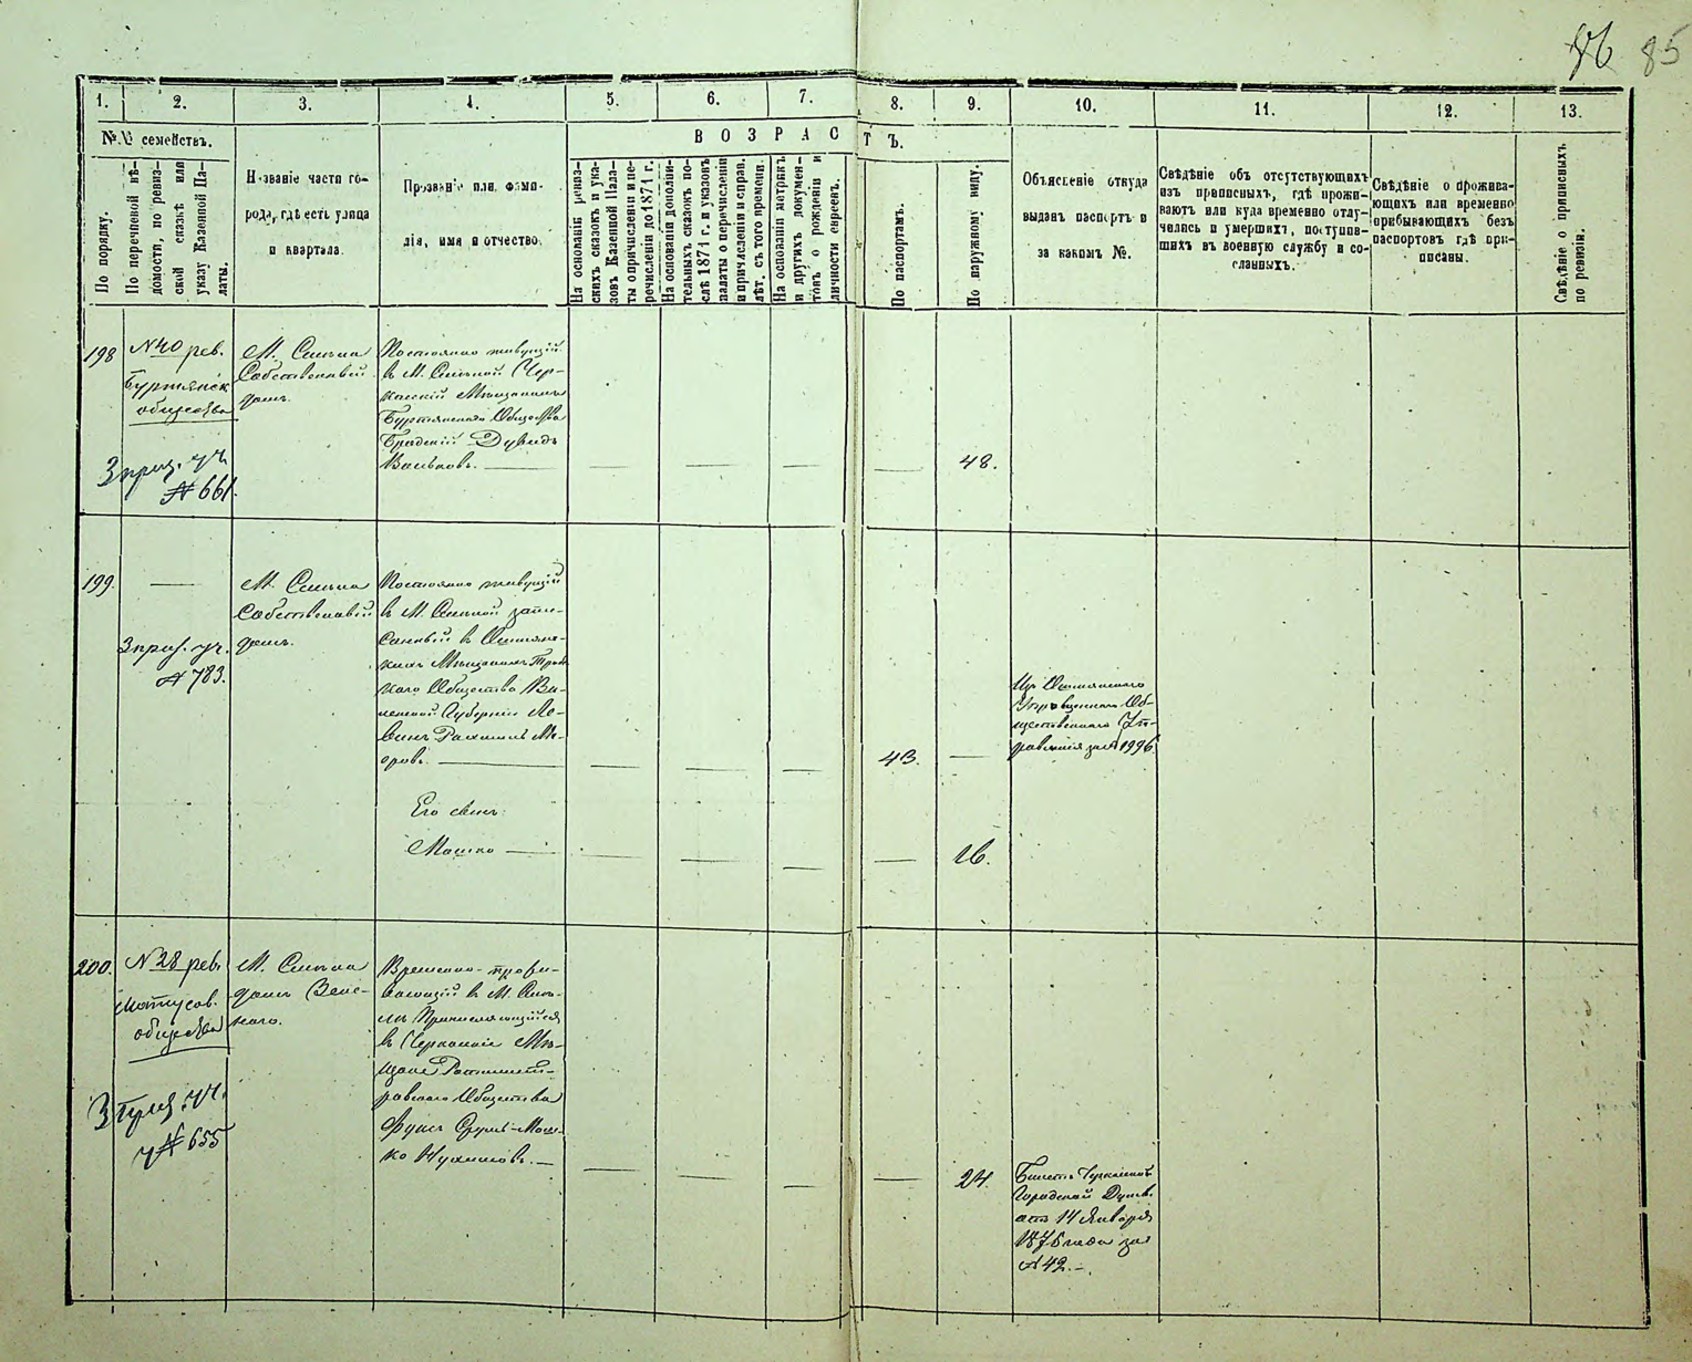 85
1. 2. 3. 4. 5. 6. 7. 8. 9. 10. 11. 12. 13.
№№ семействъ.
ВОЗРАСТЪ.
По порядку.
По перечневой вѣ-
домости, по ревиз-
ской сказкѣ или
указу Казенной Па-
латы.
Названіе части го-
рода, гдѣ есть улица
и квартала.
Прозваніе или фами-
лія, имя и отчество.
На основаніи ревиз-
скихъ сказокъ и ука-
зовъ Казенной Пала-
ты о причисленіи и пе-
речисленіи до 1871 г.
На основаніи дополни-
тельныхъ сказокъ по-
слѣ 1871 г. и указовъ
палаты о перечисленіи
и причисленіи и справ.
лѣт. съ того времени.
На основаніи метрикъ
и другихъ докумен-
товъ о рожденіи и
личности евреевъ.
По паспортамъ.
По наружному виду.
Объясненіе откуда
выданъ паспортъ и
за какимъ №.
Свѣдѣніе объ отсутствующихъ
изъ приписныхъ, гдѣ прожи-
ваютъ или куда временно отлу-
чились и умершихъ, поступив-
шихъ въ военную службу и со-
сланныхъ.
Свѣдѣніе о прожива-
ющихъ или временно
прибывающихъ безъ
паспортовъ гдѣ при-
писаны.
Свѣдѣніе о приписныхъ
по ревизіи.
198
№40 рев.
Буртянск
общества
3 приз. уч.
№ 661.
М. Смѣла
Собственный
домъ.
Постоянно живущій
въ М. Смѣлой Чер-
каскій Мѣщанинъ
Буртянскаго Общества
Бродскій Дувидъ
Вольковъ.
48.
199.
3 приз. уч.
№ 783.
М. Смѣла
Собственный
домъ.
Постоянно живущій
въ М. Смѣлой запи-
санный въ Ошмян-
скихъ Мѣщанахъ
скаго Общества Ви-
ленской Губерніи Ле-
винъ Рахмиль Ме-
еровъ.
43.
Изъ Ошмянскаго
Упрощеннаго Об-
щественнаго Уп-
равленія за № 1996.
Его сынъ
Мошко
16.
200.
№ 28 рев.
Мошусов.
общества
3 приз. уч.
№ 655
М. Смѣла
домъ
Временно-прожи-
вающій въ М. Смѣ-
лѣ Причисляющійся
въ Черкаскіе Мѣ-
щане Ротмист-
ровскаго Общества
Фуксъ Сруль-Мош-
ко Нухимовъ.
24.
Билетъ Черкаской
Городской Думы
отъ 14 Января
1875 года за
№ 42.